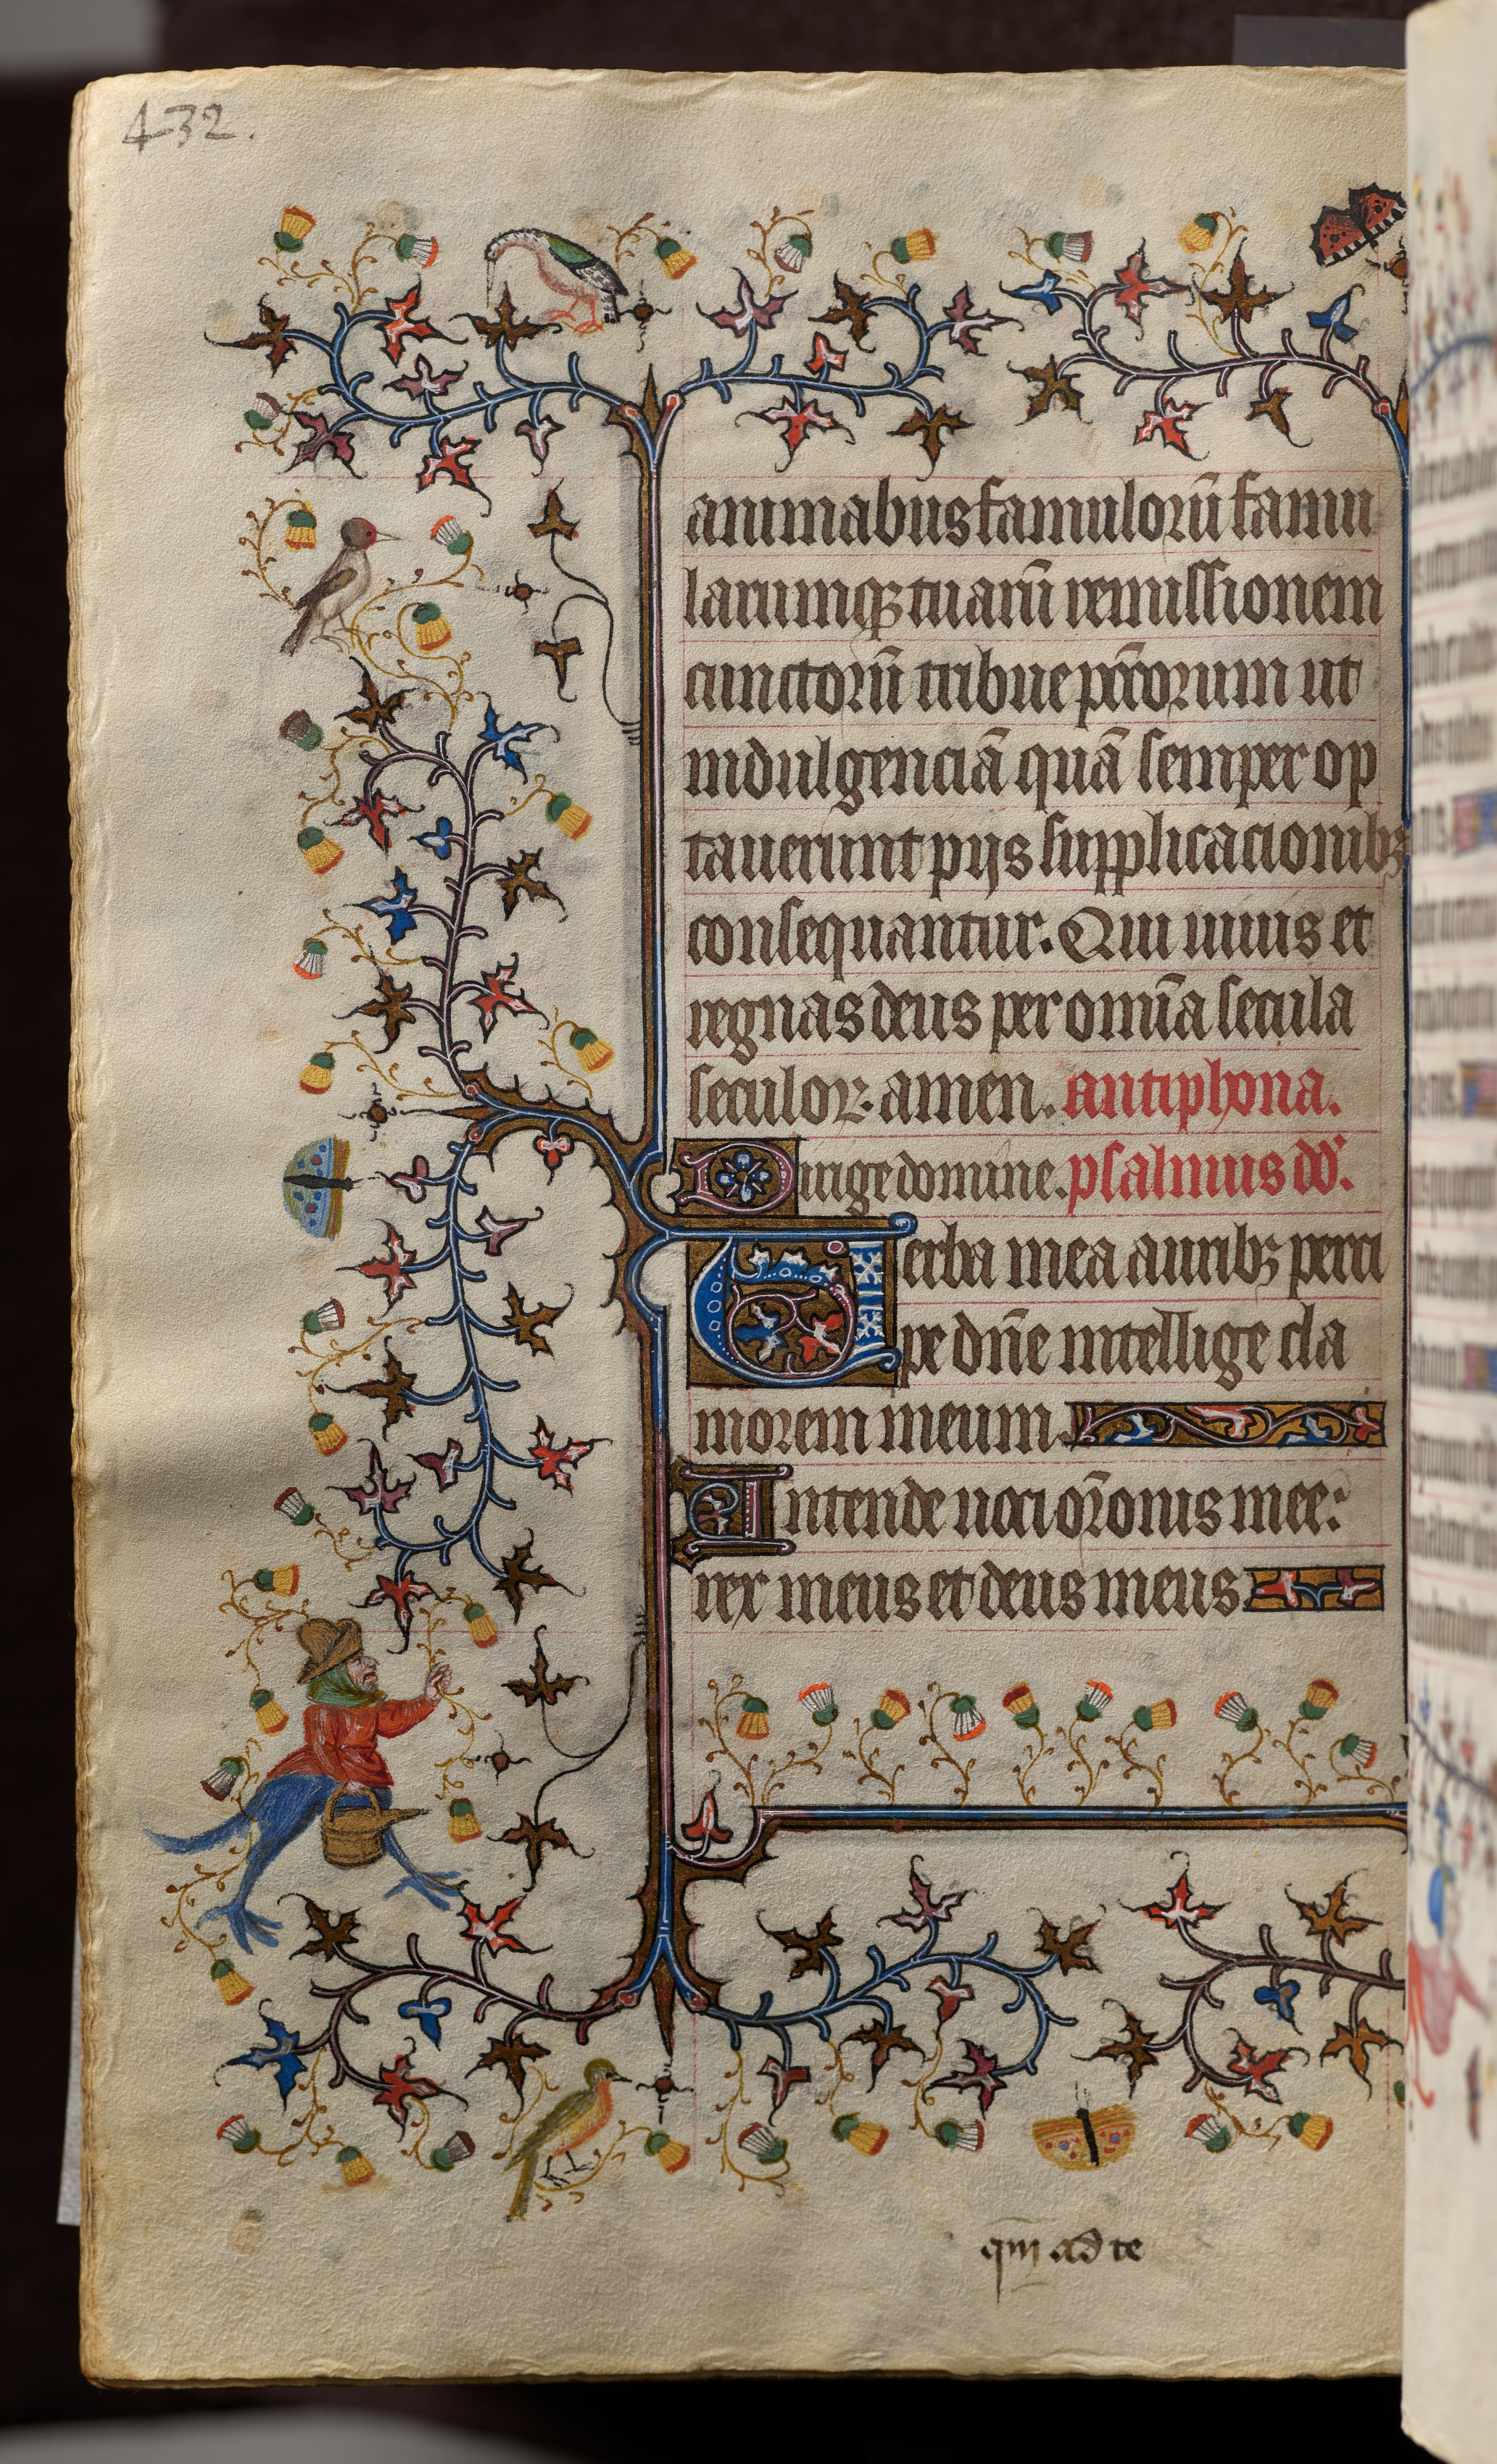 432.
animabus famulorū famu
larumqꝫ tuarū remissionem
cunctorū tribue pc̄c̄orum ut
indulgenciā quā semper op
tauerunt pijs supplicacionibꝫ
consequantur. Qui uiuis et
regnas deus per omīa secula
seculoꝝ. amen. antiphona.
Dirige domine. psalmus dd̄.
Verba mea auribꝫ perci
pe dn̄e intellige cla
morem meum.
Intende uoci or̄onis mee:
rex meus et deus meus
qm̄ ad te